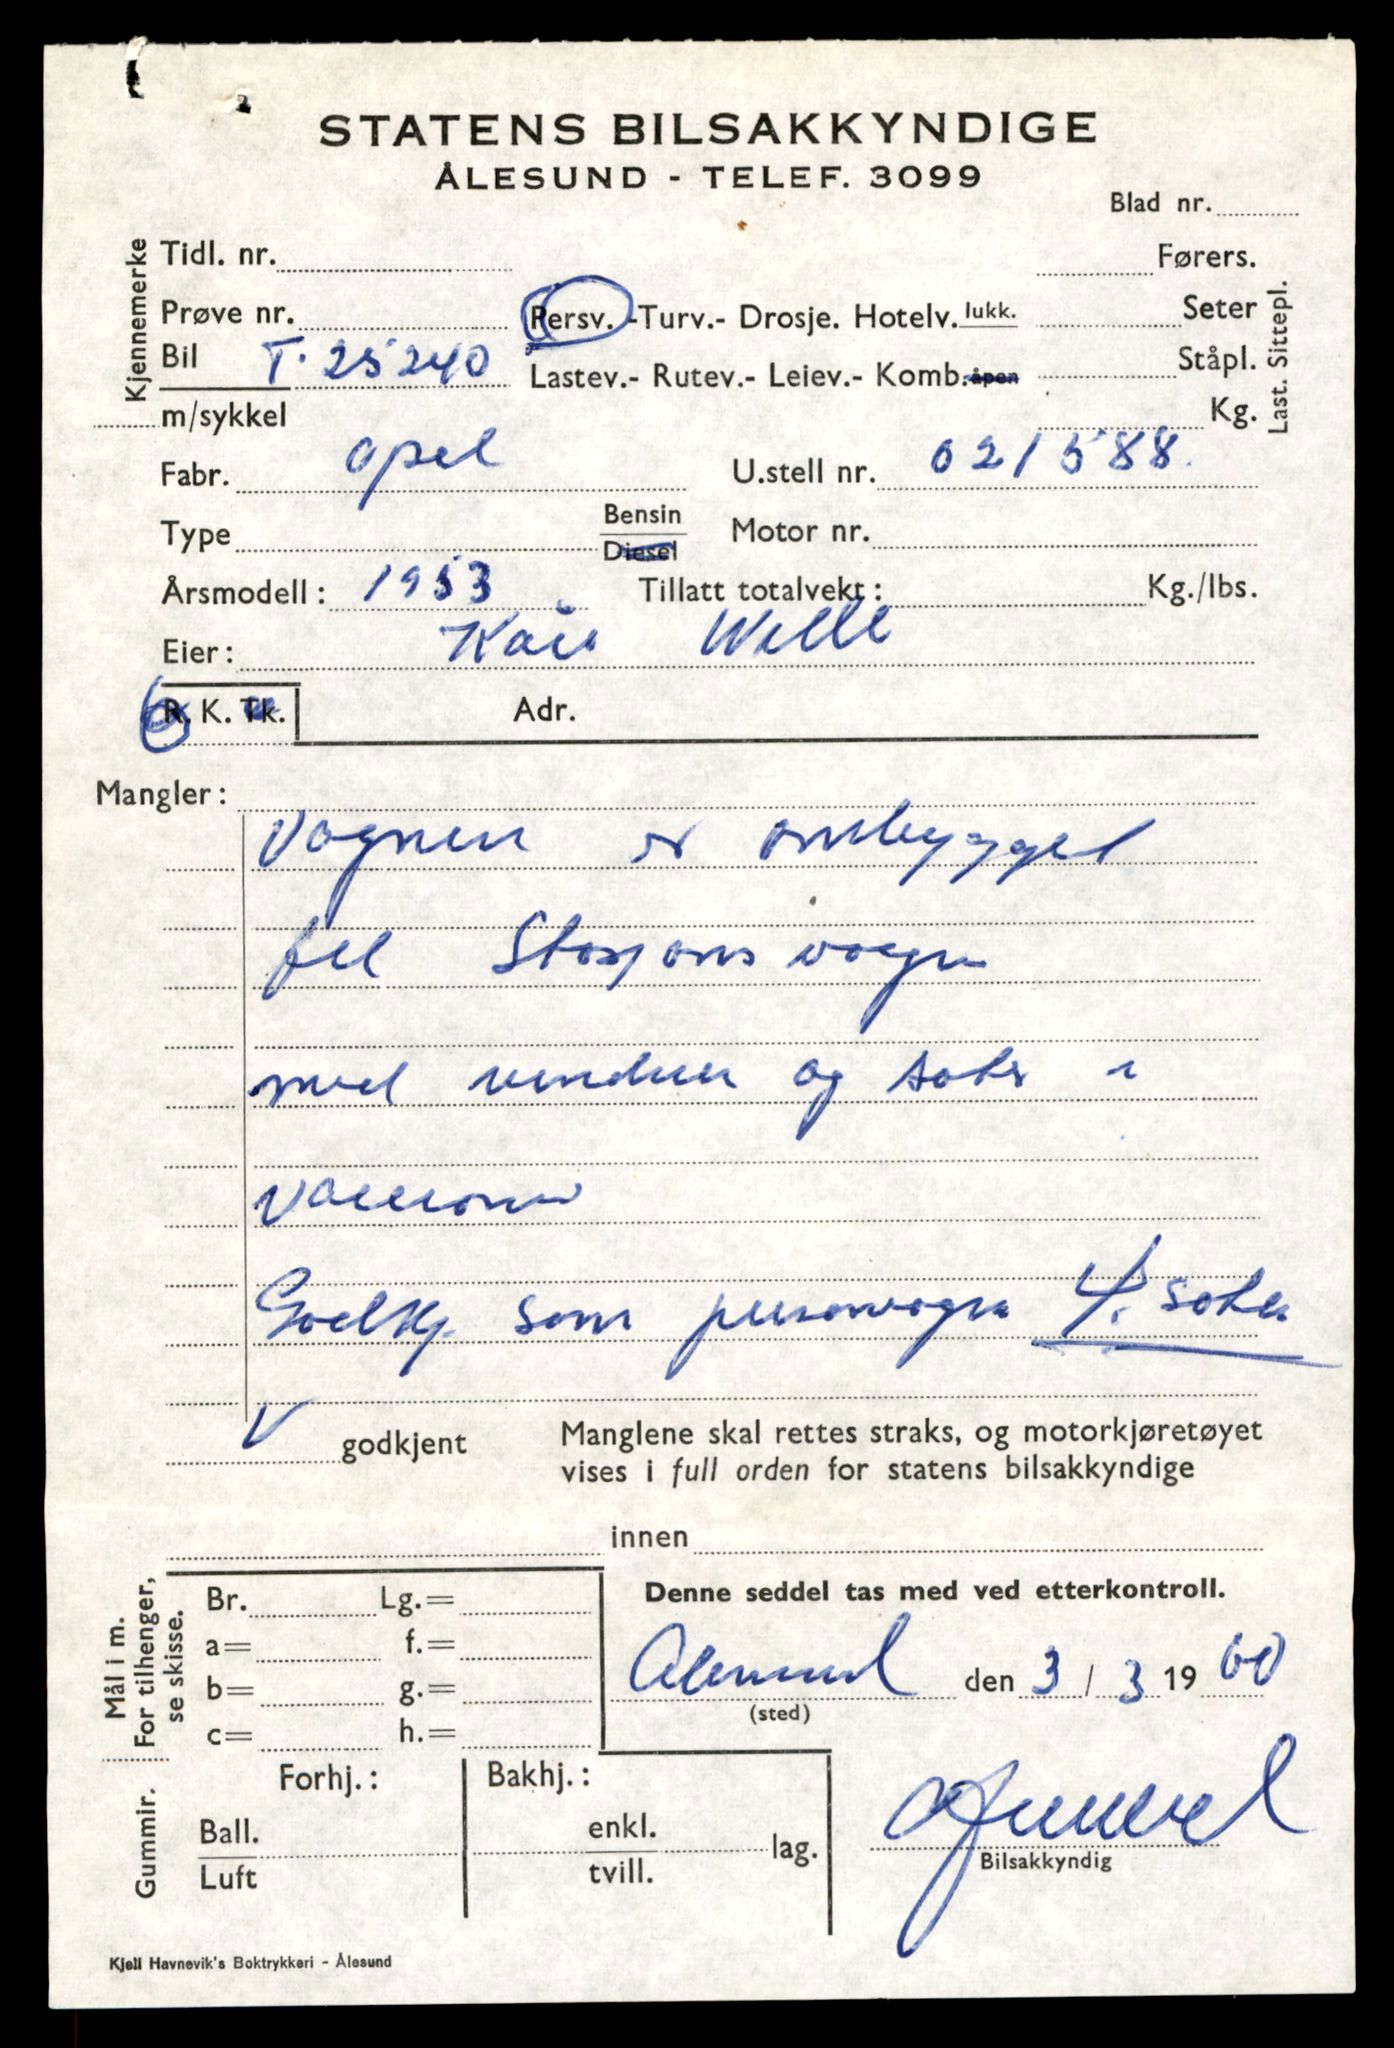 STATENS BILSAKKYNDIGE
ÅLESUND - TELEF. 3099
Blad nr.
Kjennemerke
Tidl. nr.
Førers.
Prøve nr.
Persv. -Turv.- Drosje. Hotelv. lukk.
Seter
Bil T. 25240
Lastev.- Rutev.- Leiev.- Komb. åpen
Ståpl.
Last. Sittepl.
m/sykkel
Kg.
Fabr. Opel
U.stell nr. 021588.
Type
Bensin
Diesel
Motor nr.
Årsmodell: 1953
Tillatt totalvekt: Kg./lbs.
Eier: Kåre Welle
R. K. Tk.
Adr.
Mangler:
Vognen er ombygget
til Stasjonsvogn
med vinduer og seter i
varerom
Godkj. som personvogn 4 seter
V godkjent
Manglene skal rettes straks, og motorkjøretøyet
vises i full orden for statens bilsakkyndige
innen
Mål i m.
For tilhenger,
se skisse.
Br. Lg.=
a= f.=
b= g.=
c= h.=
Denne seddel tas med ved etterkontroll.
Ålesund den 3/3 1960
(sted)
Gummir.
Forhj.:
Bakhj.:
Ball.
Luft
enkl.
tvill.
lag.
Bilsakkyndig
Kjell Havnevik's Boktrykkeri - Ålesund